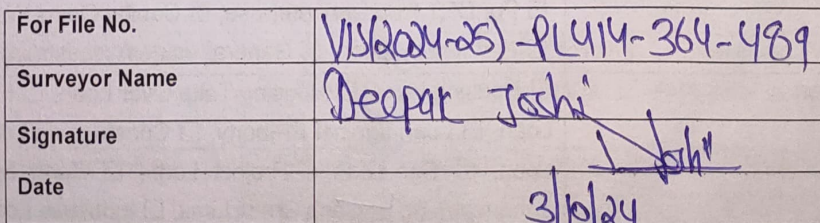 For File No. VIS(2024-25)-PL414-364-489
Surveyor Name Deepak Joshi
Signature Joshi
Date 3/10/24